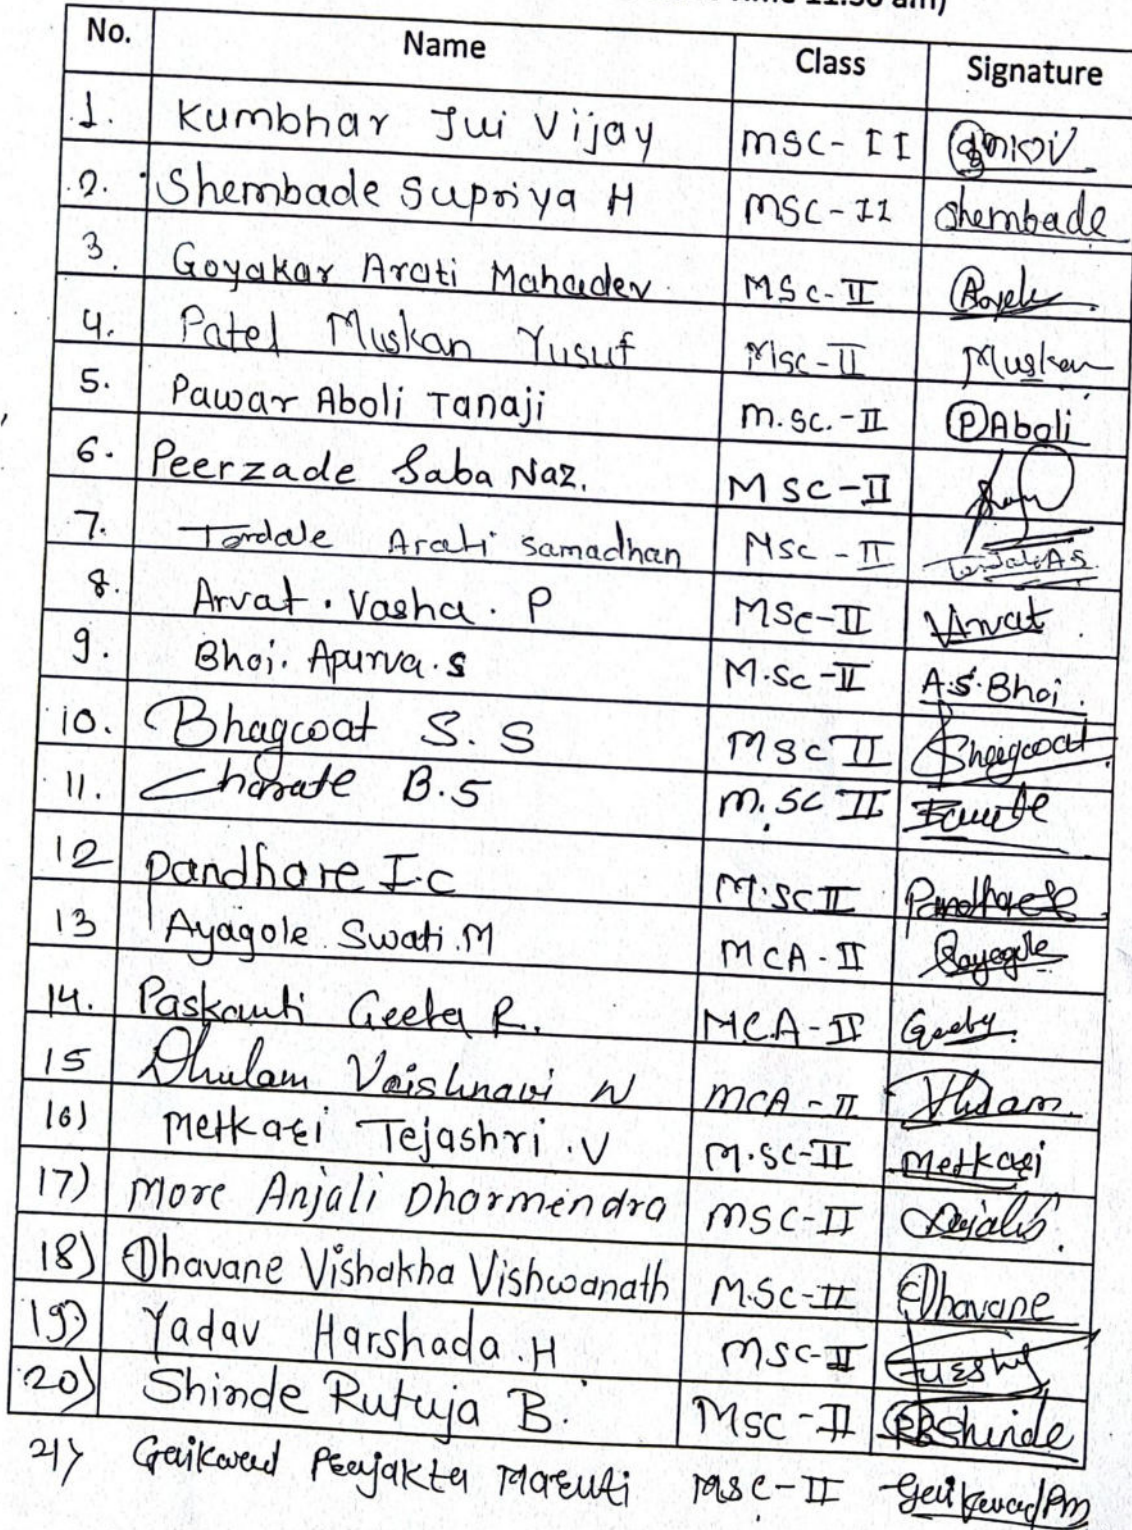 time 11.30 am)
No. Name Class Signature
1. Kumbhar Jui Vijay MSC-II
2. Shembade Supriya H MSC-II Shembade
3. Goyakar Arati Mahadev MSc-II
4. Patel Muskan Yusuf Msc-II Muskan
5. Pawar Aboli Tanaji M.SC.-II P Aboli
6. Peerzade Saba Naz. MSC-II
7. Tordale Arati Samadhan MSC-II Tordale A.S
8. Arvat. Vasha. P MSc-II Arvat
9. Bhoi. Apurva.S M.Sc-II A.S.Bhoi.
10. Bhagwat S.S MSC II Bhagwat
11. Charate B.S M.SC II
12 Pandhare I.C M.SC II Pandhare
13 Ayagole Swati.M MCA-II Aayegole
14. Paskanti Geeta R. M.C.A-II
15 Dhulam Vaishnavi N MCA-II
16) Metkari Tejashri.V M.SC-II Metkari
17) More Anjali Dharmendra MSC-II Anjali
18) Dhavane Vishakha Vishwanath M.SC-II Dhavane
19) Yadav Harshada.H MSC-II
20) Shinde Rutuja B. MSC-II RBShinde
21) Gaikwad Prajakta Maruti MSC-II Gaikwad PM